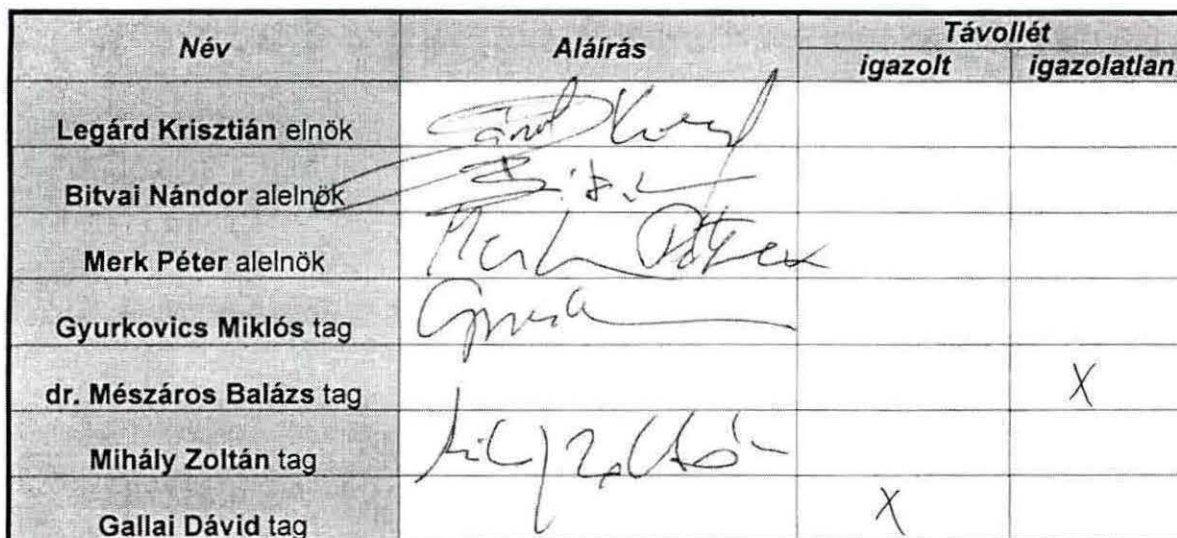 Név Aláírás Távollét
igazolt igazolatlan
Legárd Krisztián elnök
Bitvai Nándor alelnök
Merk Péter alelnök Merk Péter
Gyurkovics Miklós tag
dr. Mészáros Balázs tag X
Mihály Zoltán tag
Gallai Dávid tag X